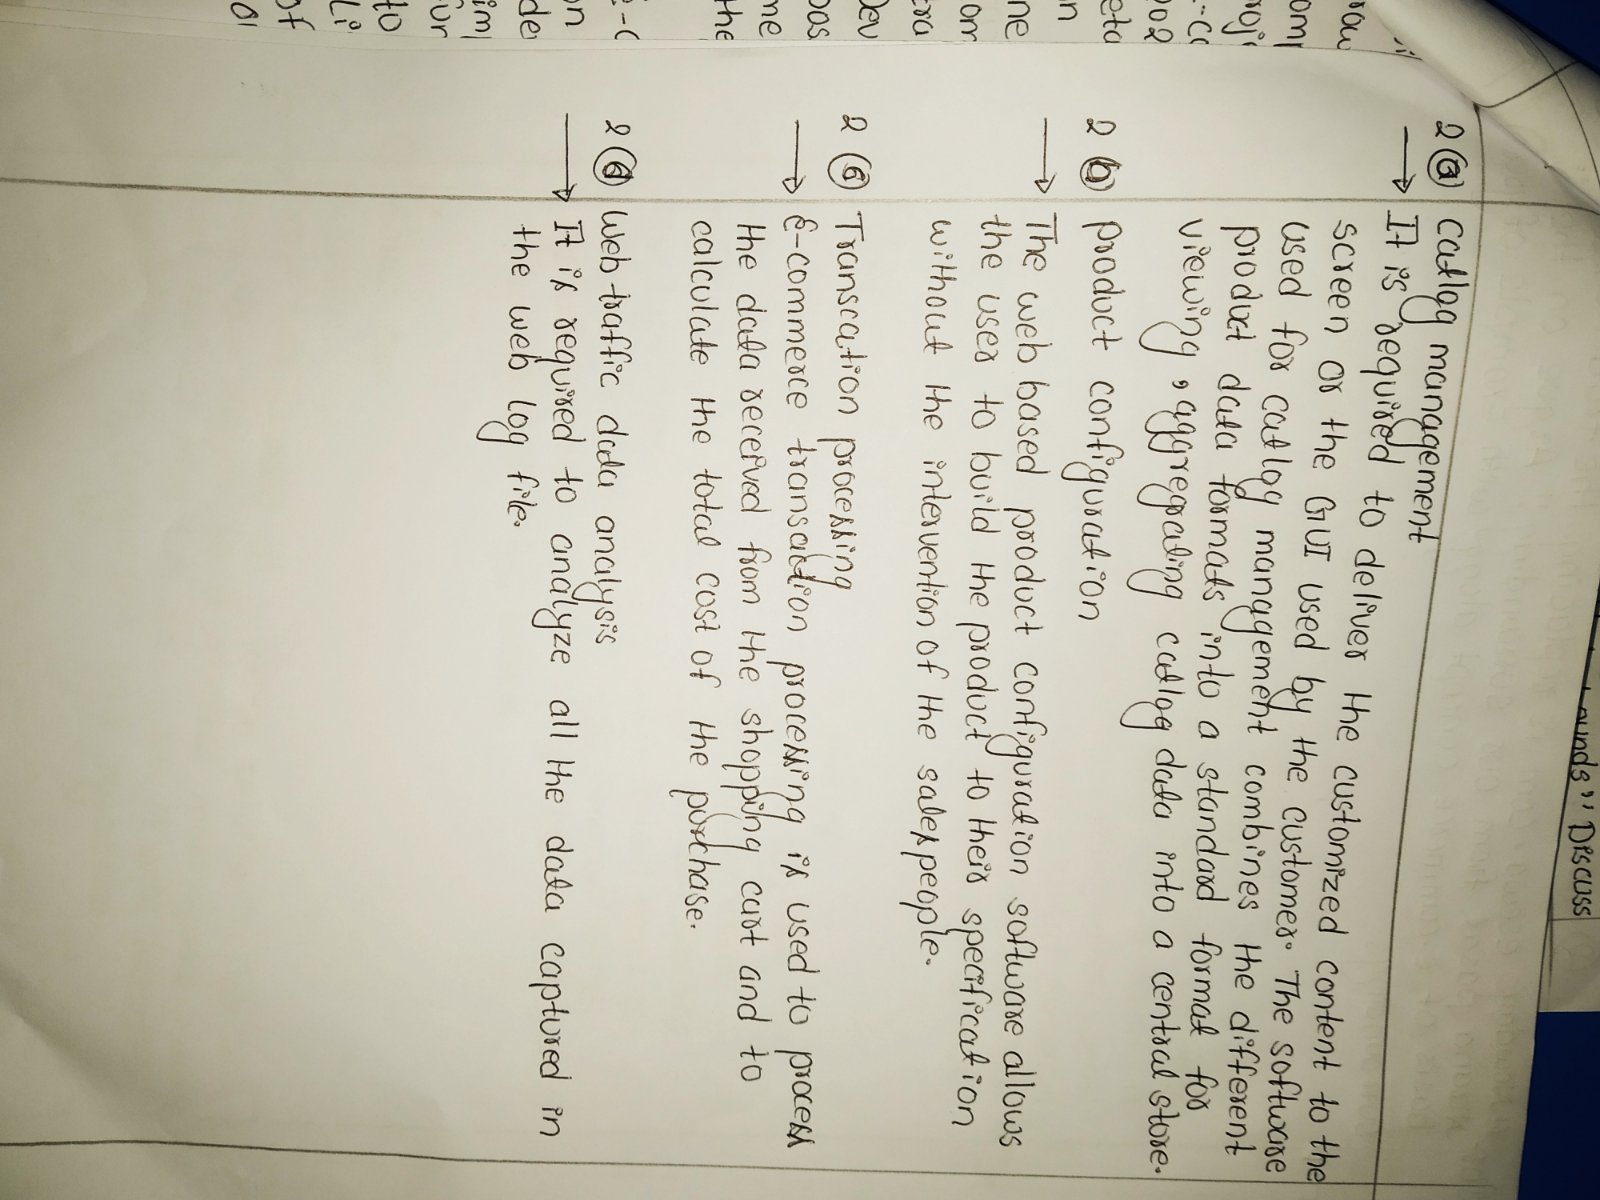 ounds" Discuss
2 (a) Catlog management
→ It is required to deliver the customized content to the
screen or the GUI used by the customer. The software
used for catlog management combines the different
product data formats into a standard format for
viewing, aggregrating catlog data into a central store.
2 (b) product configuration
→ The web based product configuration software allows
the user to build the product to their specification
without the intervention of the salespeople.
2 (c) Transcation processing
→ E-commerce transaction processing is used to process
the data received from the shopping cart and to
calculate the total cost of the purchase.
2 (d) Web traffic data analysis
→ It is required to analyze all the data captured in
the web log file.